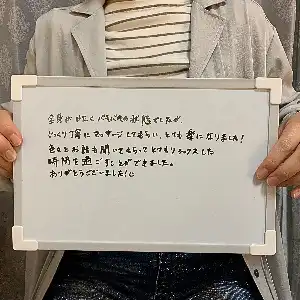 全身がかたく バキバキの状態でしたが
じっくり丁寧にマッサージしてもらい、とても楽になりました!
色々とお話も聞いてもらってとてもリラックスした
時間を過ごすことができました。
ありがとうございました!